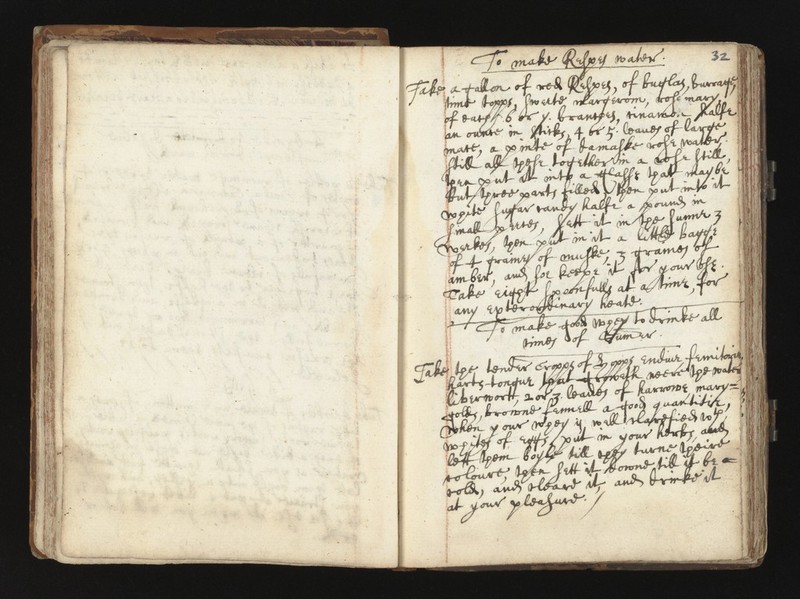 32
To make Respes water.
Take a gallon of red Respes, of buglas, burrage,
time topps, sweete margerom, rosemary
of each 6 or 7. branches, cinamon halfe
an ounce in sticks, 4 or 5. leaves of large
mace, a pinte of damaske rose water.
still all these together in a rose still,
then put it into a glasse that may be
but three parts filled, then put into it
white sugar candy halfe a pound in
small peeces, sett it in the sunne 3
weekes, then put in it a little bagge
of 4 graines of muske, 3 graines of
amber, and soe keepe it for your use.
Take eight spoonfulls at a time, for
any exterordinary heate.
To make good whey to drinke all
times of Sumer
Take the tender cropps of hopps Endive femitorie,
harts-tongue that groweth neere the water
liverwort, 2 or 3 leaves of harrone mary=
golds, browne fennell a good quantitie,
when your whey is well clarefied with
whites of eggs, put in your herbs, and
lett them boyle till they turne theire
coloure, then sett it downe till it be
cold, and cleare it, and drinke it
at your pleasure.